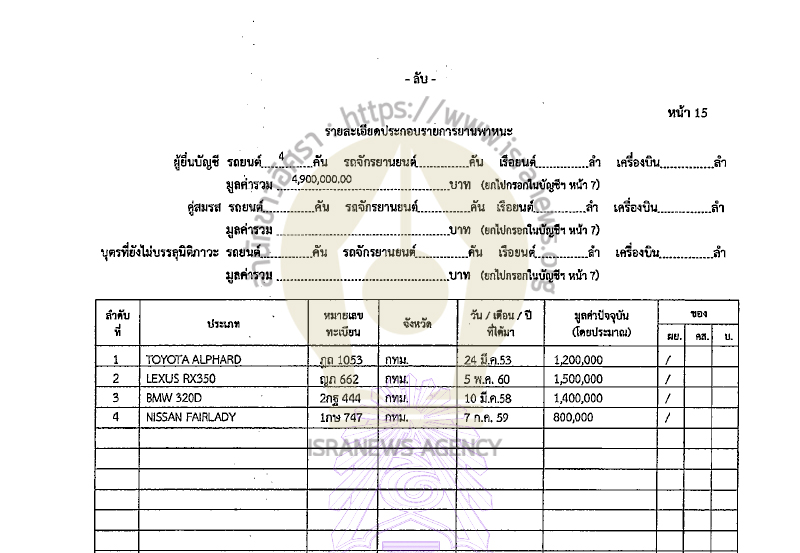 - ลับ -
หน้า 15
รายละเอียดประกอบรายการยานพาหนะ
ผู้ยื่นบัญชี รถยนต์ 4 คัน รถจักรยานยนต์ คัน เรือยนต์ ลำ เครื่องบิน ลำ
มูลค่ารวม 4,900,000.00 บาท (ยกไปกรอกในบัญชีฯ หน้า 7)
คู่สมรส รถยนต์ คัน รถจักรยานยนต์ คัน เรือยนต์ ลำ เครื่องบิน ลำ
มูลค่ารวม บาท (ยกไปกรอกในบัญชีฯ หน้า 7)
บุตรที่ยังไม่บรรลุนิติภาวะ รถยนต์ คัน รถจักรยานยนต์ คัน เรือยนต์ ลำ เครื่องบิน ลำ
มูลค่ารวม บาท (ยกไปกรอกในบัญชีฯ หน้า 7)
ลำดับที่ ประเภท หมายเลขทะเบียน จังหวัด วัน / เดือน / ปี ที่ได้มา มูลค่าปัจจุบัน (โดยประมาณ) ของ
ผย. คส. บ.
1 TOYOTA ALPHARD ภถ 1053 กทม. 24 มี.ค.53 1,200,000 /
2 LEXUS RX350 ญภ 662 กทม. 5 พ.ค. 60 1,500,000 /
3 BMW 320D 2กฐ 444 กทม. 10 มี.ค.58 1,400,000 /
4 NISSAN FAIRLADY 1กษ 747 กทม. 7 ก.ค. 59 800,000 /
สำนักข่าวอิศรา : https://www.isranews.org
ISRANEWS AGENCY